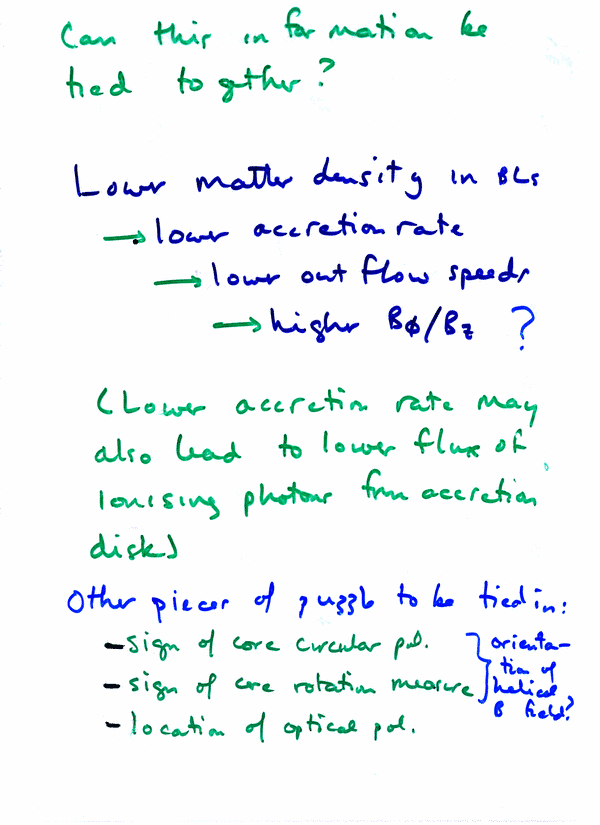 Can this information be
tied together?
Lower matter density in BLs
→ lower accretion rate
→ lower outflow speeds
→ higher Bϕ/Bz ?
(Lower accretion rate may
also lead to lower flux of
ionising photons from accretion
disk)
Other pieces of puzzle to be tied in:
- sign of core circular pol.
- sign of core rotation measure
- location of optical pol.
orienta-
tion of
helical
B field?